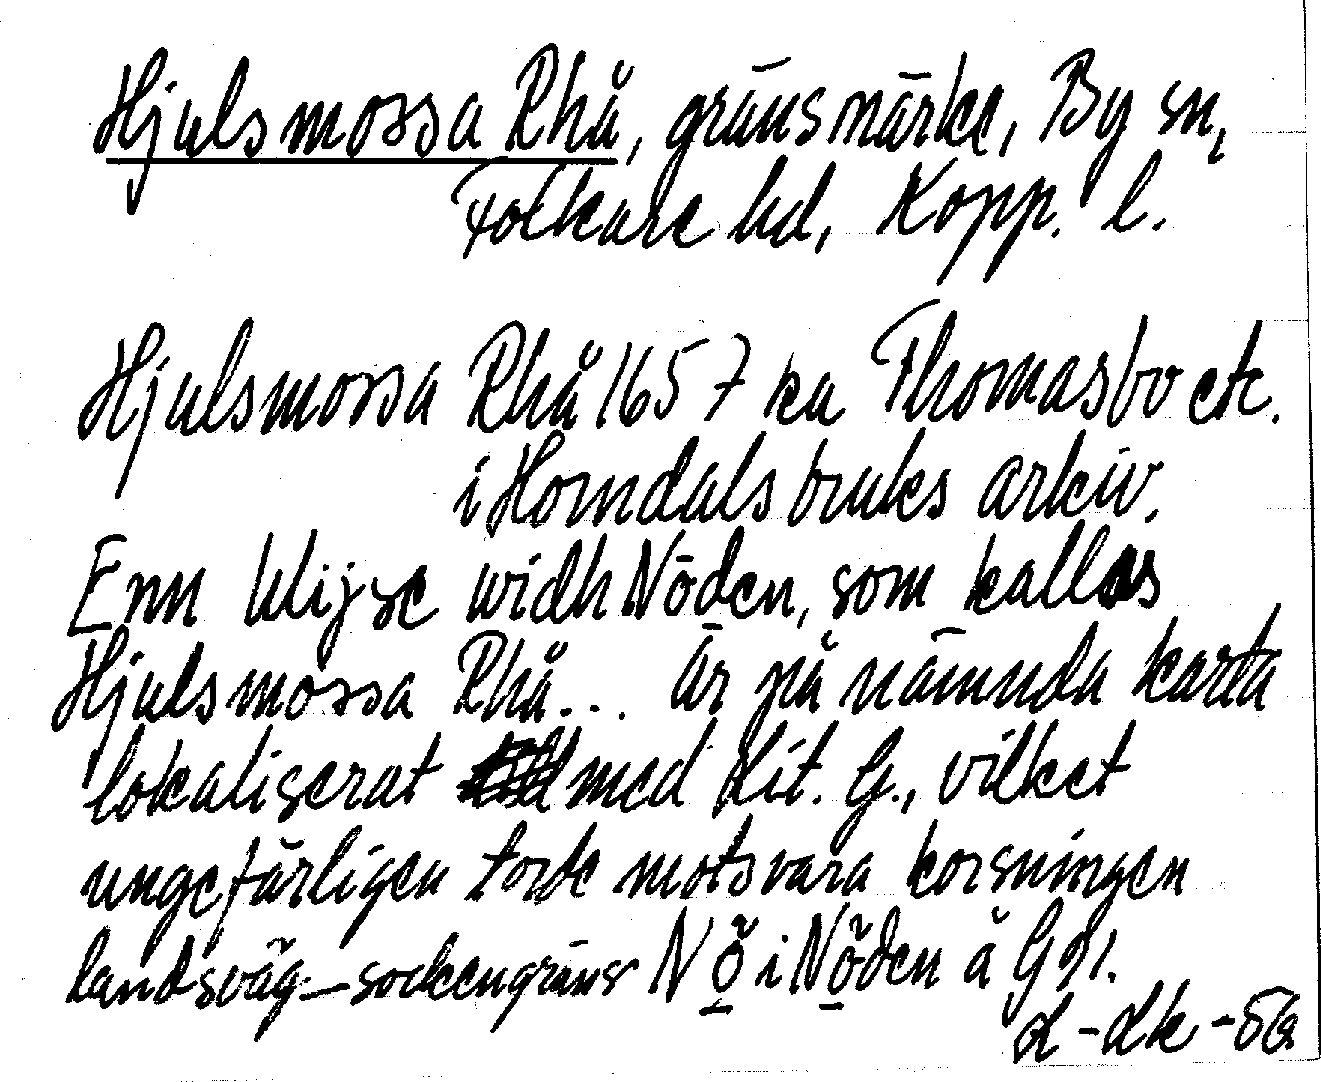 Hjulsmossa Rhå, gränsmärke, By sn,
Folkare hd, Kopp. l.
Hjulsmossa Rhå 1657 ka Thomasbo etc.
i Horndals bruks arkiv.
Enn klijse widh Nöden, som kallas
Hjulsmossa Rhå... Är på nämnda karta
lokaliserat med Lit. G., vilket
ungefärligen torde motsvara korsningen
landsväg–sockengräns N ö i Nöden å Gbl.